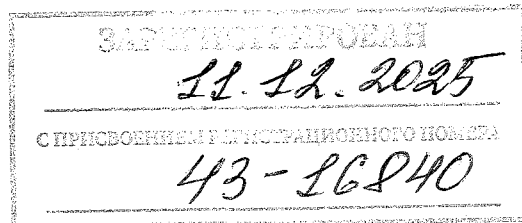 ЗАРЕГИСТРИРОВАН
11.12.2025
С ПРИСВОЕНИЕМ РЕГИСТРАЦИОННОГО НОМЕРА
43-16840